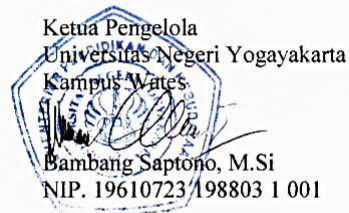 Ketua Pengelola
Universitas Negeri Yogayakarta
Kampus Wates
Bambang Saptono, M.Si
NIP. 19610723 198803 1 001